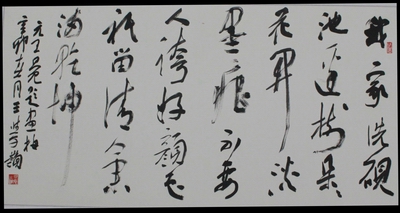 我家洗硯
池邊樹朵
花開淡
墨痕不要
人誇好顏色
祇留清氣
滿乾坤
元王冕題畫梅
辛卯 月王